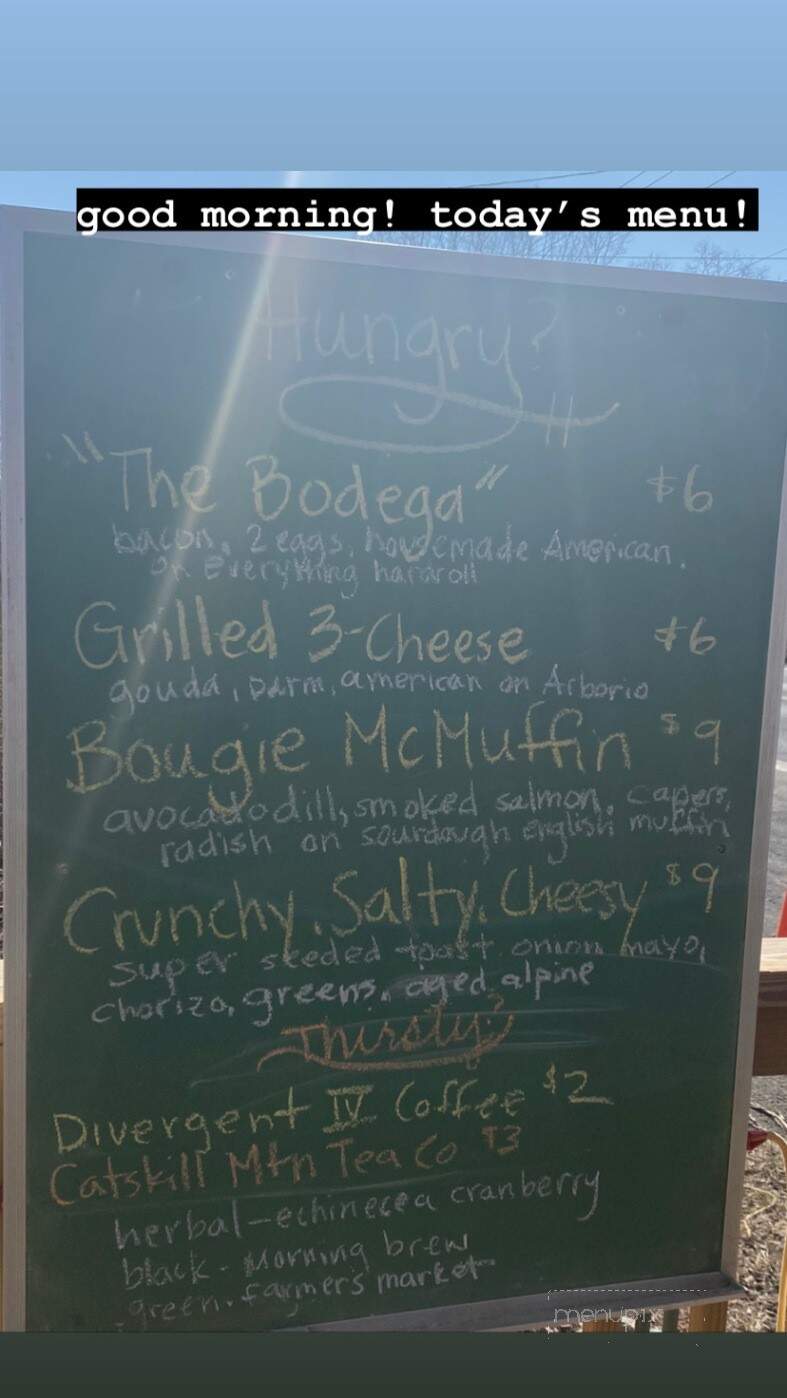 good morning! today's menu!
Hungry?
"The Bodega" $6
bacon, 2 eggs, housemade American.
on everything hardroll
Grilled 3-Cheese $6
gouda, parm, american on Arborio
Bougie McMuffin $9
avocado dill, smoked salmon, capers,
radish on sourdough english muffin
Crunchy, Salty, Cheesy $9
super seeded toast onion mayo,
chorizo, greens, aged alpine
Thirsty?
Divergent IV Coffee $2
Catskill Mtn Tea Co $3
herbal-echinecea cranberry
black- Morning brew
green. farmers market
menupix